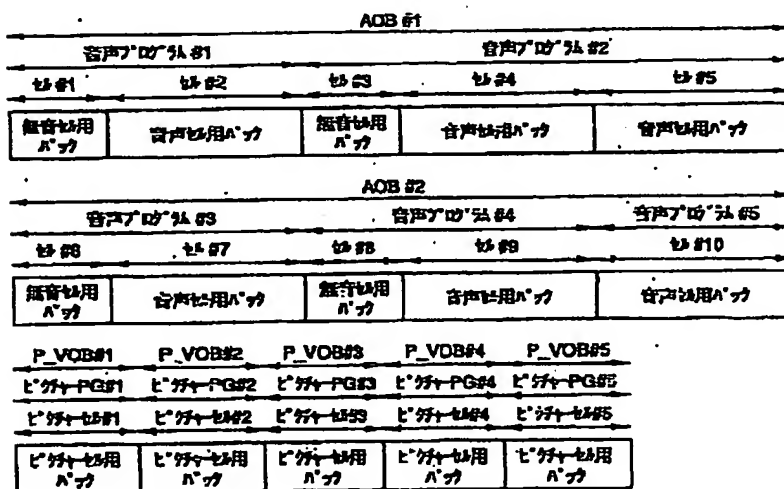 AOB #1
音声プログラム#1 音声プログラム#2
セル#1 セル#2 セル#3 セル#4 セル#5
無音セル用パック 音声セル用パック 無音セル用パック 音声セル用パック 音声セル用パック
AOB #2
音声プログラム#3 音声プログラム#4 音声プログラム#5
セル#6 セル#7 セル#8 セル#9 セル#10
無音セル用パック 音声セル用パック 無音セル用パック 音声セル用パック 音声セル用パック
P_VOB#1 P_VOB#2 P_VOB#3 P_VOB#4 P_VOB#5
ピクチャーPG#1 ピクチャーPG#2 ピクチャーPG#3 ピクチャーPG#4 ピクチャーPG#5
ピクチャーセル#1 ピクチャーセル#2 ピクチャーセル#3 ピクチャーセル#4 ピクチャーセル#5
ピクチャーセル用パック ピクチャーセル用パック ピクチャーセル用パック ピクチャーセル用パック ピクチャーセル用パック